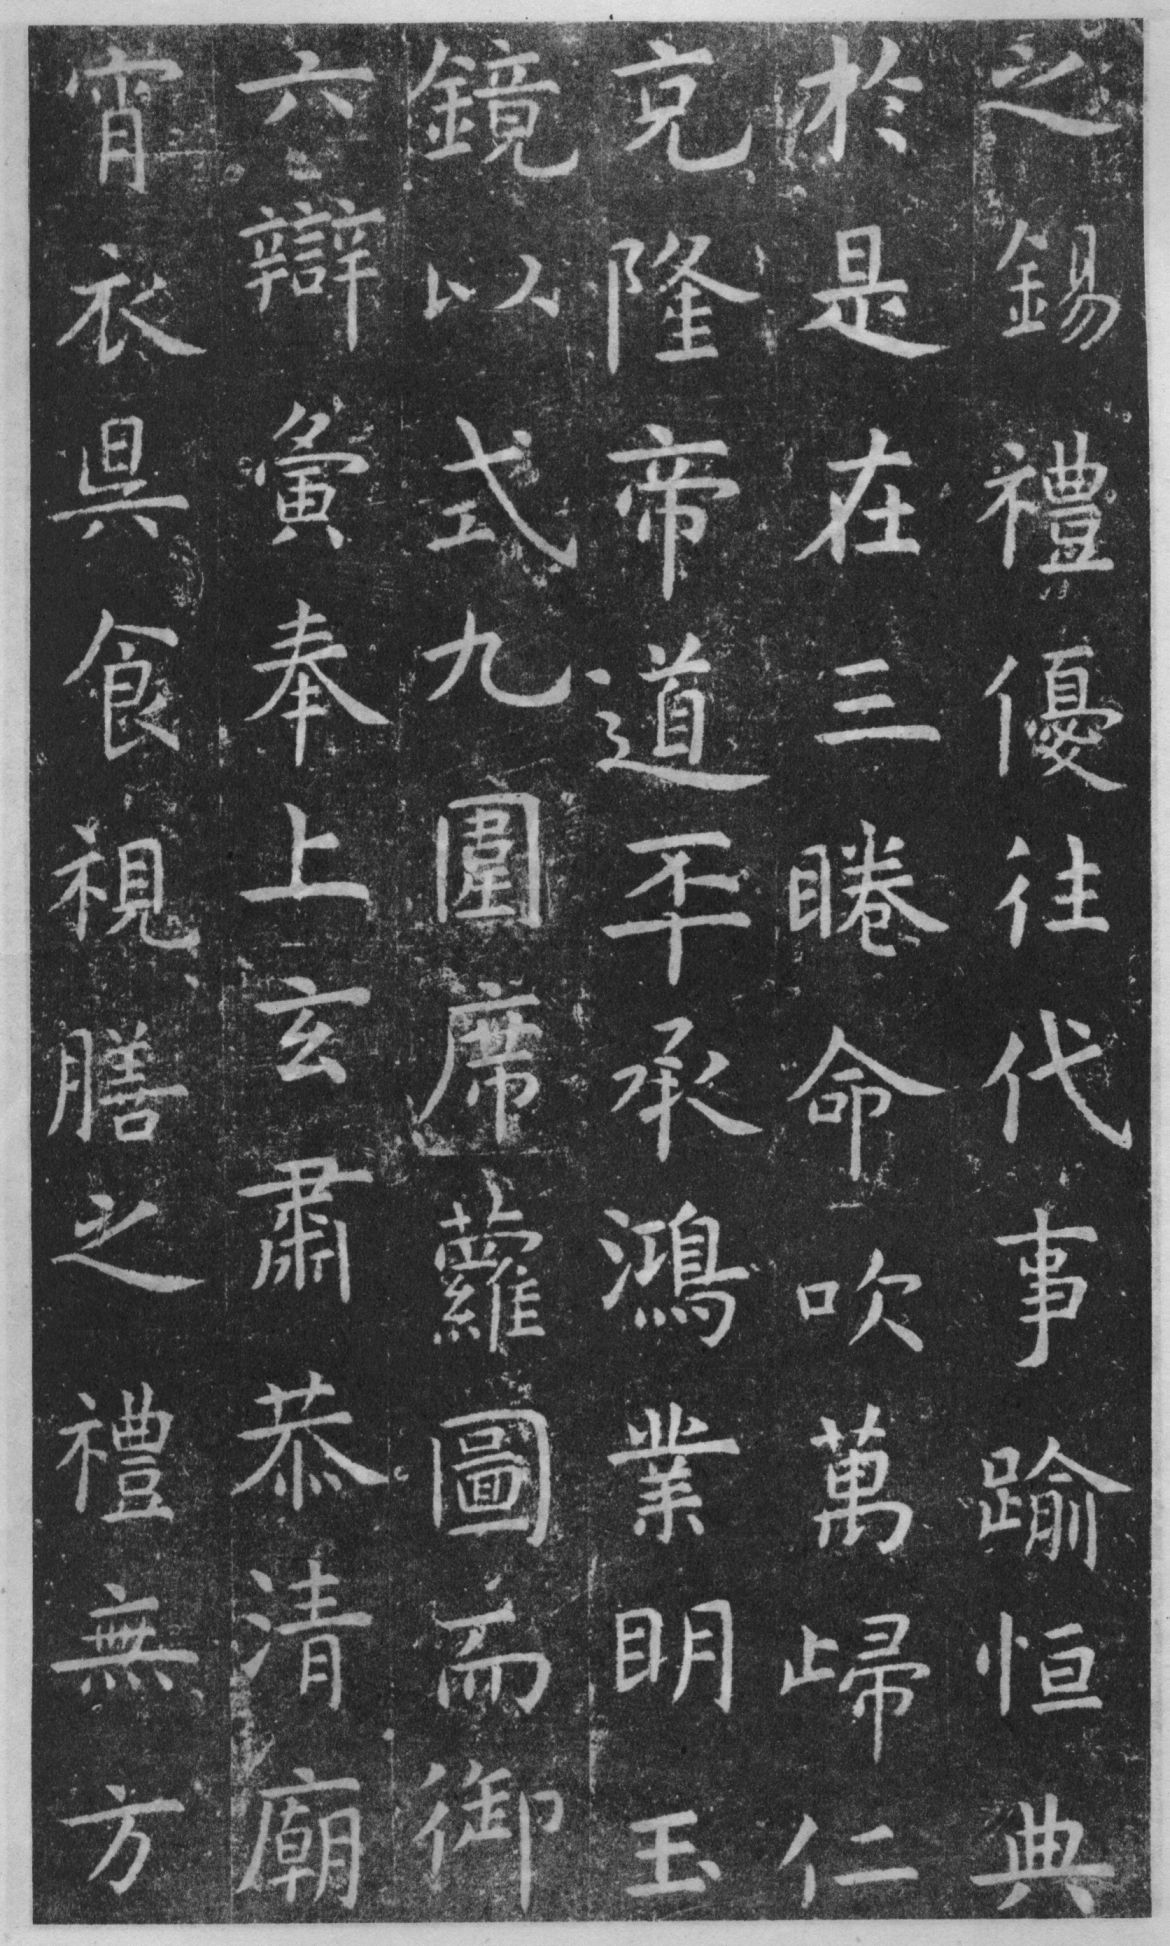 之錫禮優往代事踰恒典
於是在三眷命吹萬歸仁
克隆帝道丕承鴻業明玉
鏡以式九圍席蘿圖而御
六辯夤奉上玄肅恭清廟
宵衣昃食視膳之禮無方